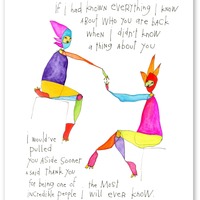 If I had known everything I know
about who you are back
when I didn't know
a thing about you
I would've
pulled
you aside sooner
& said thank you
for being one of the most
incredible people I will ever know.